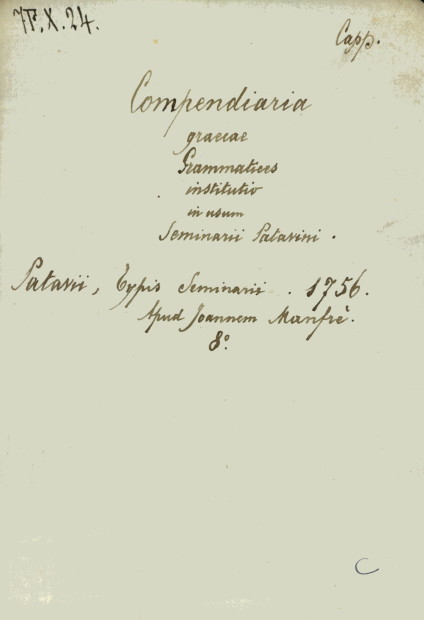 7P.X.24.
Capp.
Compendiaria
graecae
Grammatices
institutio
in usum
Seminarii Patavini.
Patavii, Typis Seminarii. 1756.
Apud Joannem Manfrè.
8°
C